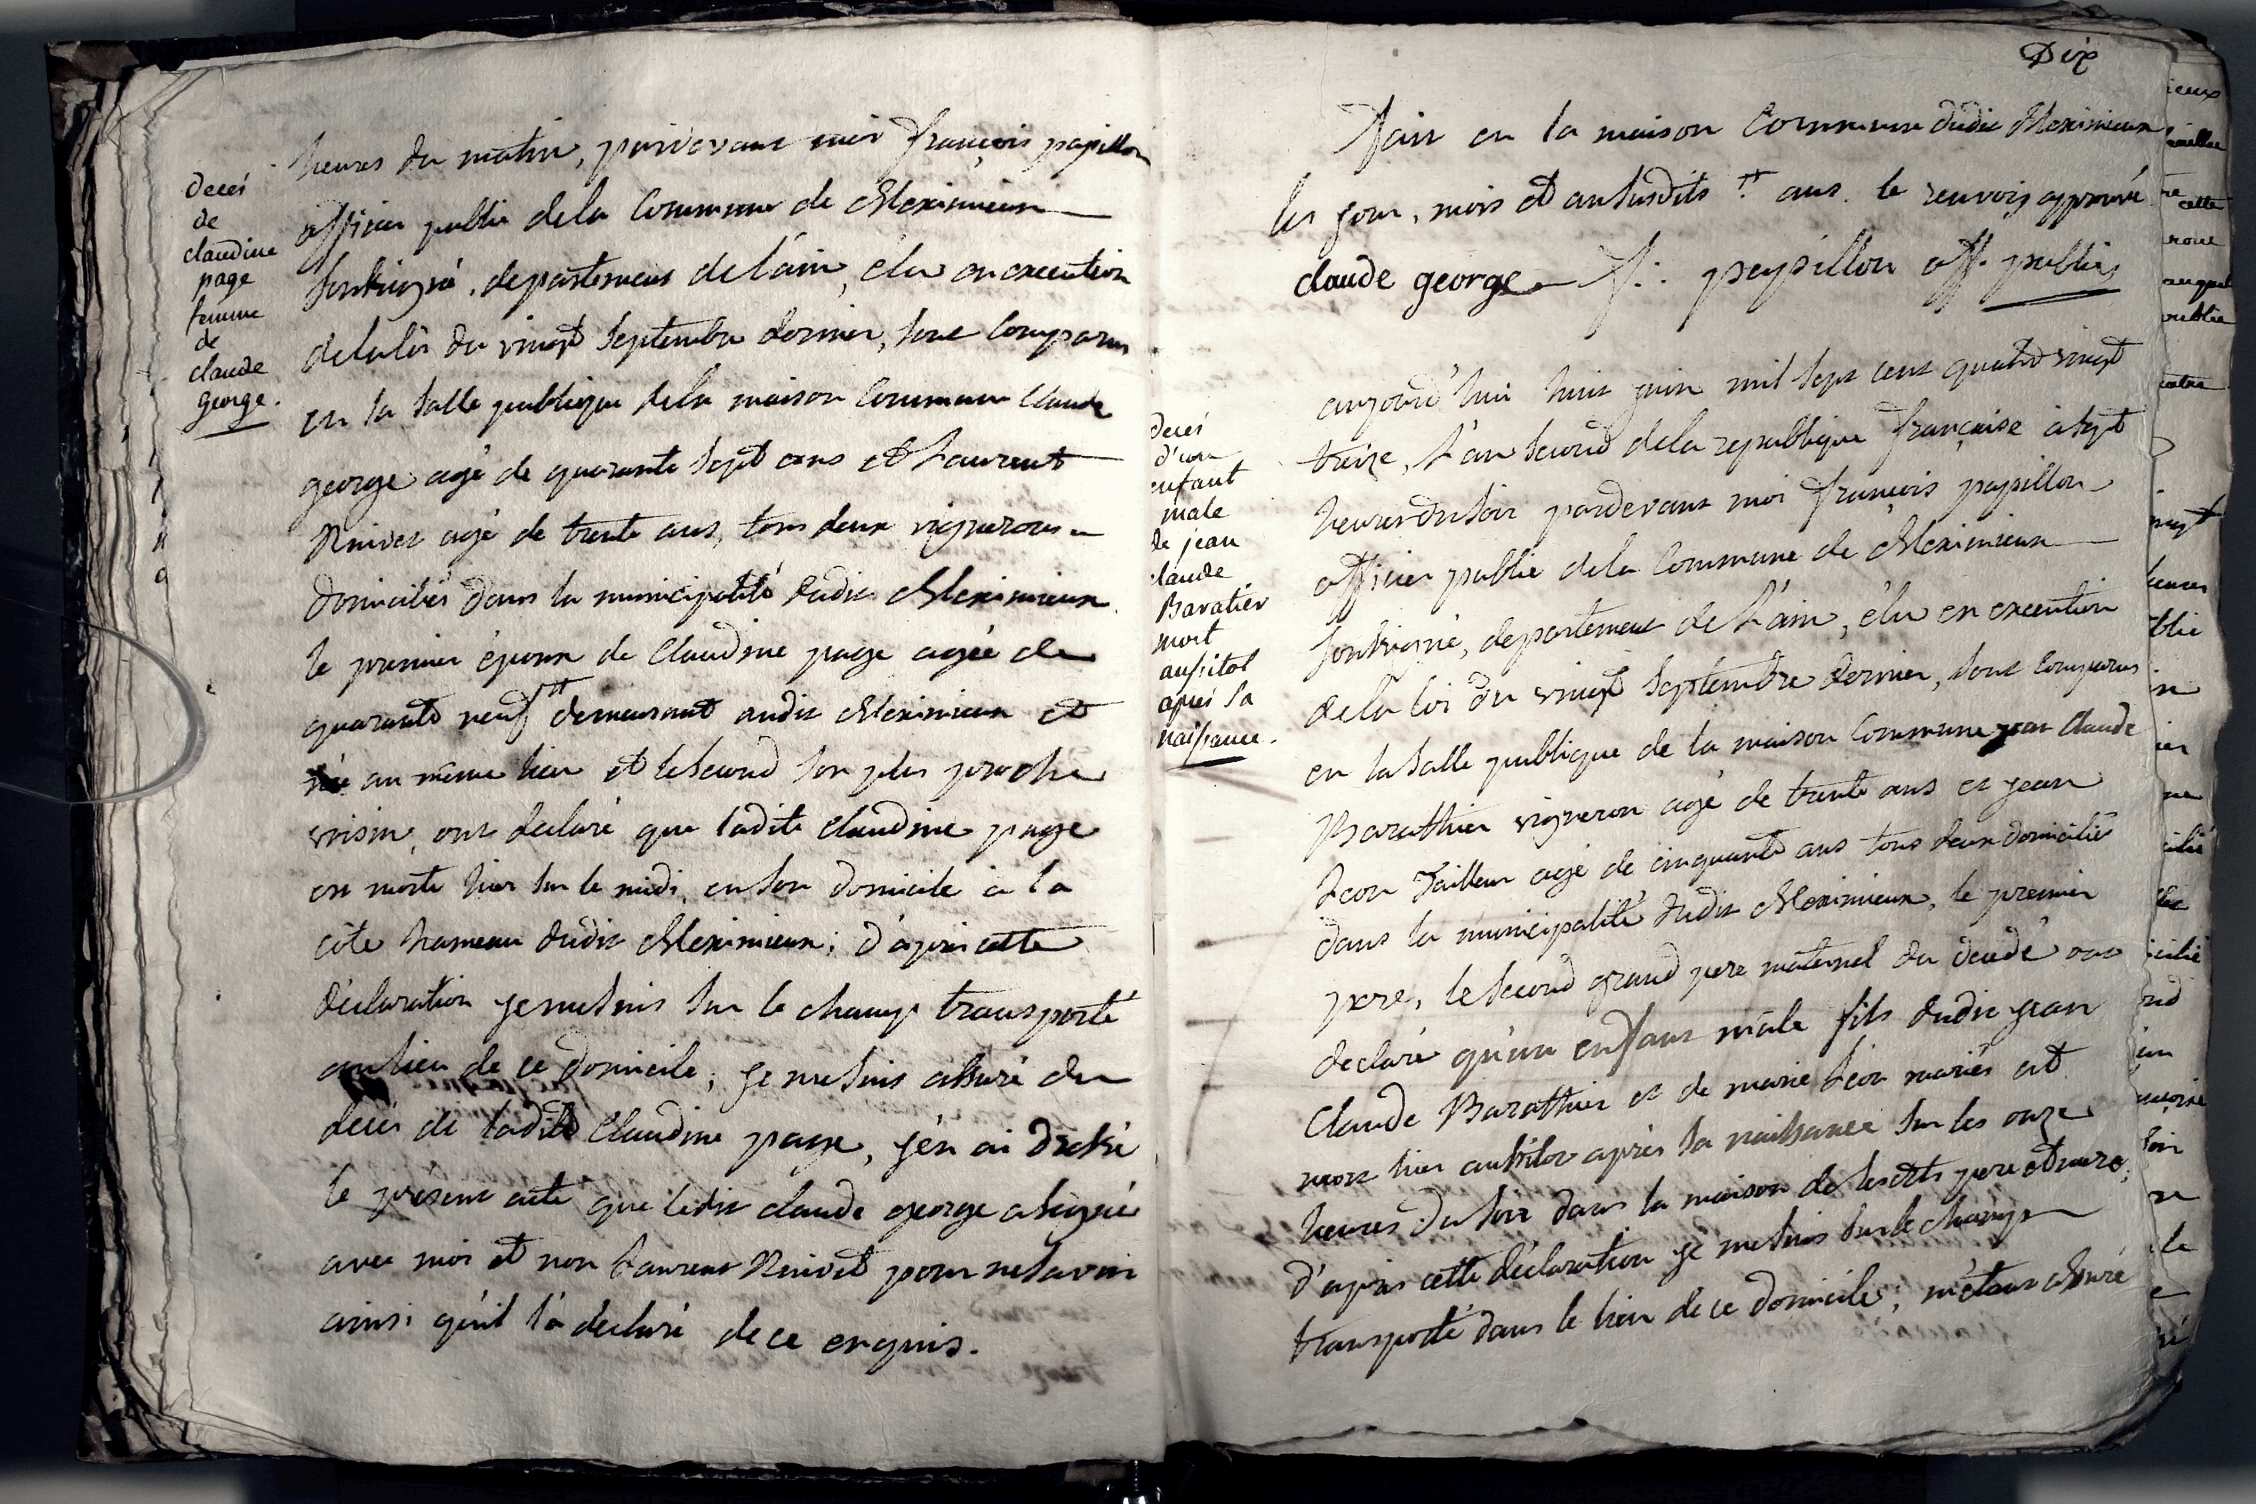 decés
de
claudine
page
femme
de
claude
george.
heures du matin, pardevant moi françois papillon
officier public dela Commune de Meximieux
soussigné, departement de l'ain, élu en execution
delaloi du vingt septembre dernier, sont comparus
en la salle publique dela maison Commune Claude
george agé de quarante sept ans et Laurent
agé de trente ans, tous deux vignerons
domiciliés dans la municipalité dudit Meximieux
le premier époux de Claudine page agée de
quarante neuf # demeurant audit Meximieux et
née au même lieu et lesecond son plus proche
voisin, ont declaré que ladite Claudine page
est morte hier sur le midi, enson domicile à la
côte hameau dudit Meximieux; d'après cette
déclaration jemesuis sur le champ transporté
aulieu de ce domicile, je mesuis assuré du
decés de ladite Claudine page, j'en ai dressé
le présent acte que ledit claude george asigné
avec moi et non Laurent pour nesavoir
ainsi qu'il l'a declaré de ce enquis.
Dix
fait en la maison Commune dudit Meximieux
les jour, mois et ansusdits # ans. le renvoi approuvé
claude george f: papillon off. public
decés
d'un
enfant
male
de jean
claude
Baratier
mort
aussitot
après sa
naissance.
aujourd'hui huit juin mil sept cent quatre vingt
treize, L'an second dela republique française à sept
heures du soir pardevant moi françois papillon
officier public dela Commune de Meximieux
soussigné, departement de L'ain, élu en execution
dela loi du vingt septembre dernier, sont comparus
en lasalle publique de la maison Commune jean Claude
Barathier vigneron agé de trente ans et jean
agé de cinquante ans tous deux domiciliés
dans la municipalité dudit Meximieux, le premier
pere, le second grand pere maternel du decedé ont
declaré qu'un enfant mâle fils dudit jean
Claude Barathier et de marie mariés est
mort hier aussitot après sa naissance sur les onze
heures du soir dans la maison de lesdits pere et mere,
d'après cette déclaration je mesuis sur le champ
transporté dans le lieu de ce domicile, m'étant assuré